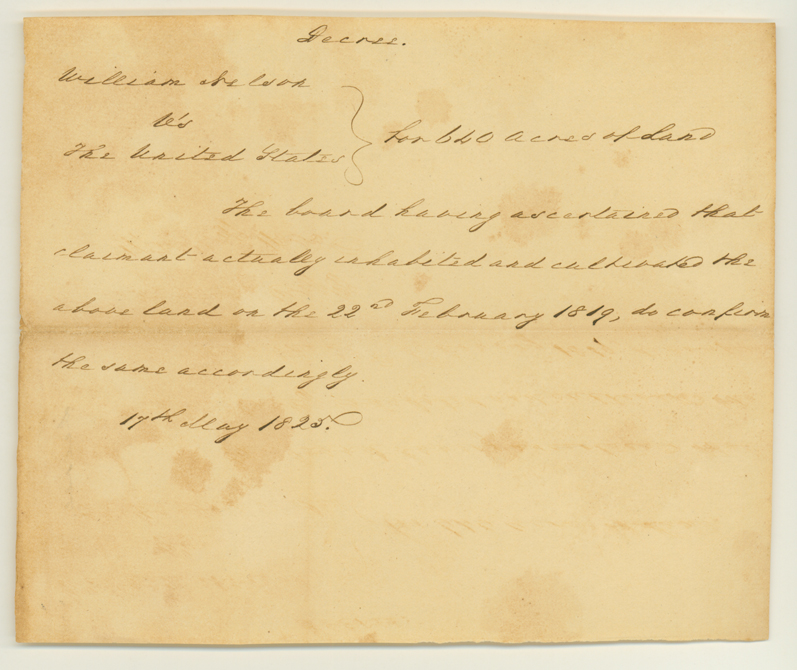 Decree.
William Nelson
Vs
The United States
For 640 Acres of Land
The board having ascertained that
claimant actually inhabited and cultivated the
above land on the 22nd February 1819, do confirm
the same accordingly.
17th May 1825.